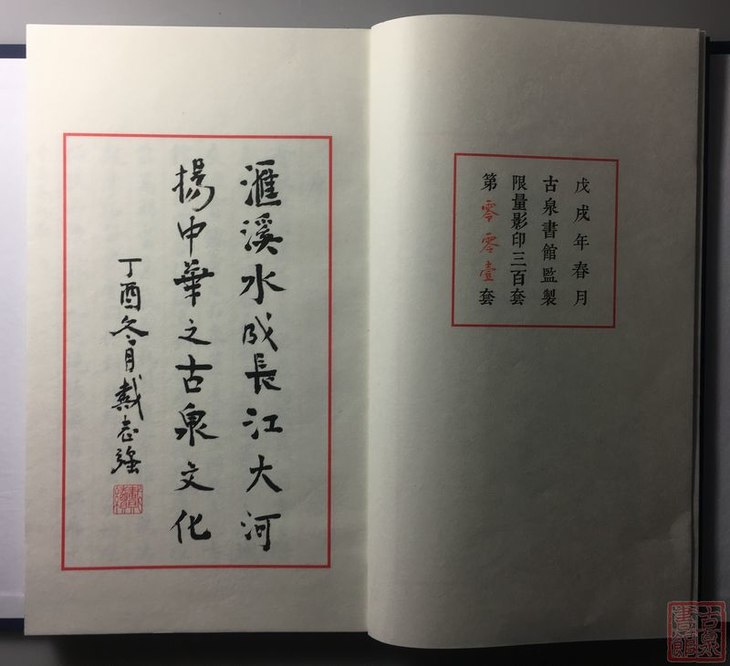 戊戌年春月
古泉書館監製
限量影印三百套
第零零壹套
滙溪水成長江大河
揚中華之古泉文化
丁酉冬月戴志強
古泉書館